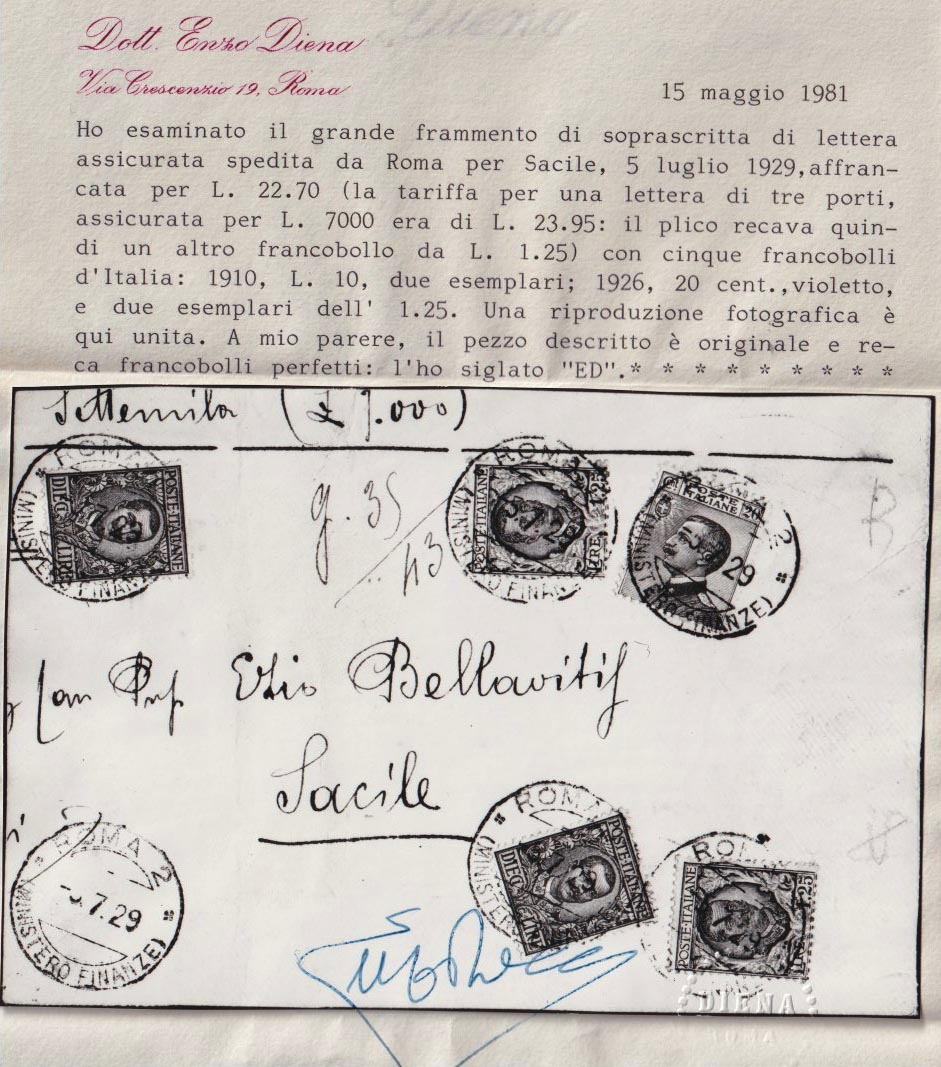 Dott. Enzo Diena
Via Crescenzio 19, Roma
15 maggio 1981
Ho esaminato il grande frammento di soprascritta di lettera
assicurata spedita da Roma per Sacile, 5 luglio 1929,affran-
cata per L. 22.70 (la tariffa per una lettera di tre porti,
assicurata per L. 7000 era di L. 23.95: il plico recava quin-
di un altro francobollo da L. 1.25) con cinque francobolli
d'Italia: 1910, L. 10, due esemplari; 1926, 20 cent.,violetto,
e due esemplari dell' 1.25. Una riproduzione fotografica è
qui unita. A mio parere, il pezzo descritto è originale e re-
ca francobolli perfetti: l'ho siglato "ED".* * * * * * * * *
Settemila (₤ 7.000)
ROMA
(MINISTERO FINANZE)
DIECI LIRE
POSTE·ITALIANE
g. 35
43
ROMA
POSTE·ITALIANE
LIRE 1,25
(MINISTERO FINANZE)
POSTE ITALIANE 20
2
29
(MINISTERO FINANZE)
Ezio Bellavitis
Sacile
ROMA 2
7.29
(MINISTERO FINANZE)
ROMA
DIECI LIRE
POSTE·ITALIANE
ROMA
POSTE·ITALIANE
1,25
DIENA
ROMA